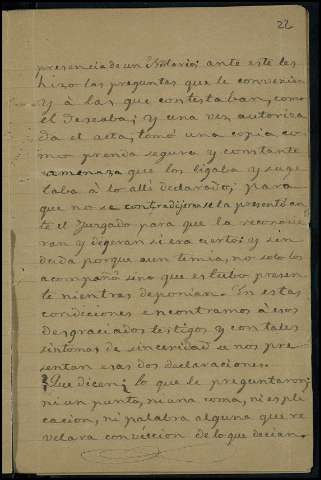 22
presencia de un Notario; ante este les
hizo las preguntas que le convenian
y á las que contestaban, como
él deseaba; y una vez autoriza
da el acta, tomó una copia co
mo prenda segura y constante
amenaza que los ligaba y suge
taba á lo alli declarado; para
que no se contradijerase la presentó an
te el Juzgado para que la reconocie
ran y digeran si era cierto; y sin
duda porque aun temia, no solo los
acompañó sino que estubo presen
te mientras deponian. En estas
condiciones encontramos á esos
desgraciados testigos y con tales
sintomas de sinceridad se nos pre
sentan esas dos declaraciones.
¿Que dicen; lo que le preguntaron;
ni un punto, ni una coma, ni espli
cacion, ni palabra alguna que re
velara conviccion de lo que decian.